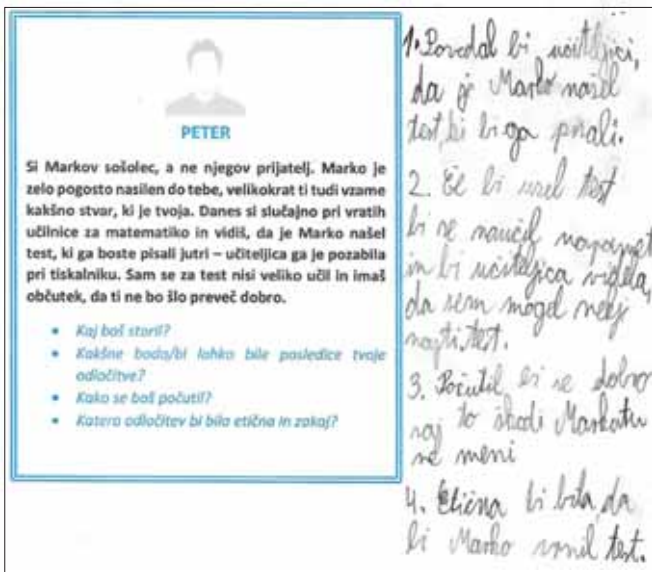 PETER
Si Markov sošolec, a ne njegov prijatelj. Marko je
zelo pogosto nasilen do tebe, velikokrat ti tudi vzame
kakšno stvar, ki je tvoja. Danes si slučajno pri vratih
učilnice za matematiko in vidiš, da je Marko našel
test, ki ga boste pisali jutri – učiteljica ga je pozabila
pri tiskalniku. Sam se za test nisi veliko učil in imaš
občutek, da ti ne bo šlo preveč dobro.
• Kaj boš storil?
• Kakšne bodo/bi lahko bile posledice tvoje
odločitve?
• Kako se boš počutil?
• Katera odločitev bi bila etična in zakaj?
1. Povedal bi učiteljici,
da je Marko našel
test, ki bi ga pisali.
2. Če bi vzel test
bi se naučil napamet
in bi učiteljica videla,
da sem mogel nekj
najti test.
3. Počutil bi se dobro
saj to škodi Markotu
ne meni
4. Etična bi bila, da
bi Marko vrnil test.